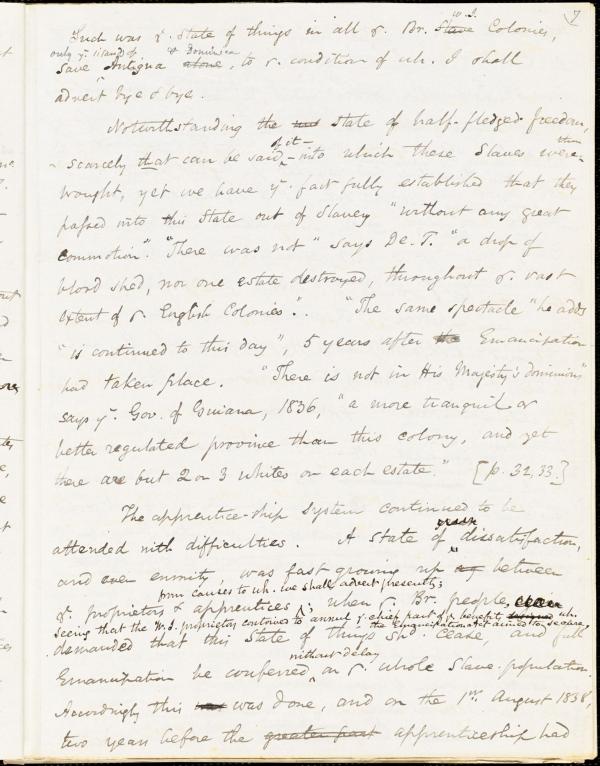 7
Such was y. state of things in all y. Br. W. I. Colonies,
only y. island of & Dominica
save Antigua alone, to y. condition of wh. I shall
advert bye & bye.
Notwithstanding the state of half-fledged freedom,
of it – then
– scarcely that can be said, – into which these Slaves were
brought, yet we have y. fact fully established that they
passed into this State out of Slavery "without any great
commotion". "There was not" says De. T. "a drop of
blood shed, nor one estate destroyed, throughout y. vast
extent of y. English Colonies". "The same spectacle" he adds
"is continued to this day", 5 years after the Emancipation
had taken place. "There is not in His Majesty's dominions"
says y. Gov. of Guiana, 1836, "a more tranquil or
better regulated province than this colony, and yet
there are but 2 or 3 whites on each estate." [p. 32, 33.]
The apprentice-ship system continued to be
attended with difficulties. A state of dissatisfaction,
and even enmity, was fast growing up between
from causes to wh. we shall advert presently;
y. proprietors & apprentices; when y. Br. people,
seeing that the W. I. proprietors contrived to annul y. chief part of y. benefit wh. the Emancipation Act aimed to secure,
demanded that this State of things shd. cease, and full
without delay
Emancipation be conferred on y. whole Slave-population.
Accordingly this was done, and on the 1st. August 1838,
two years before the greater part apprenticeship had